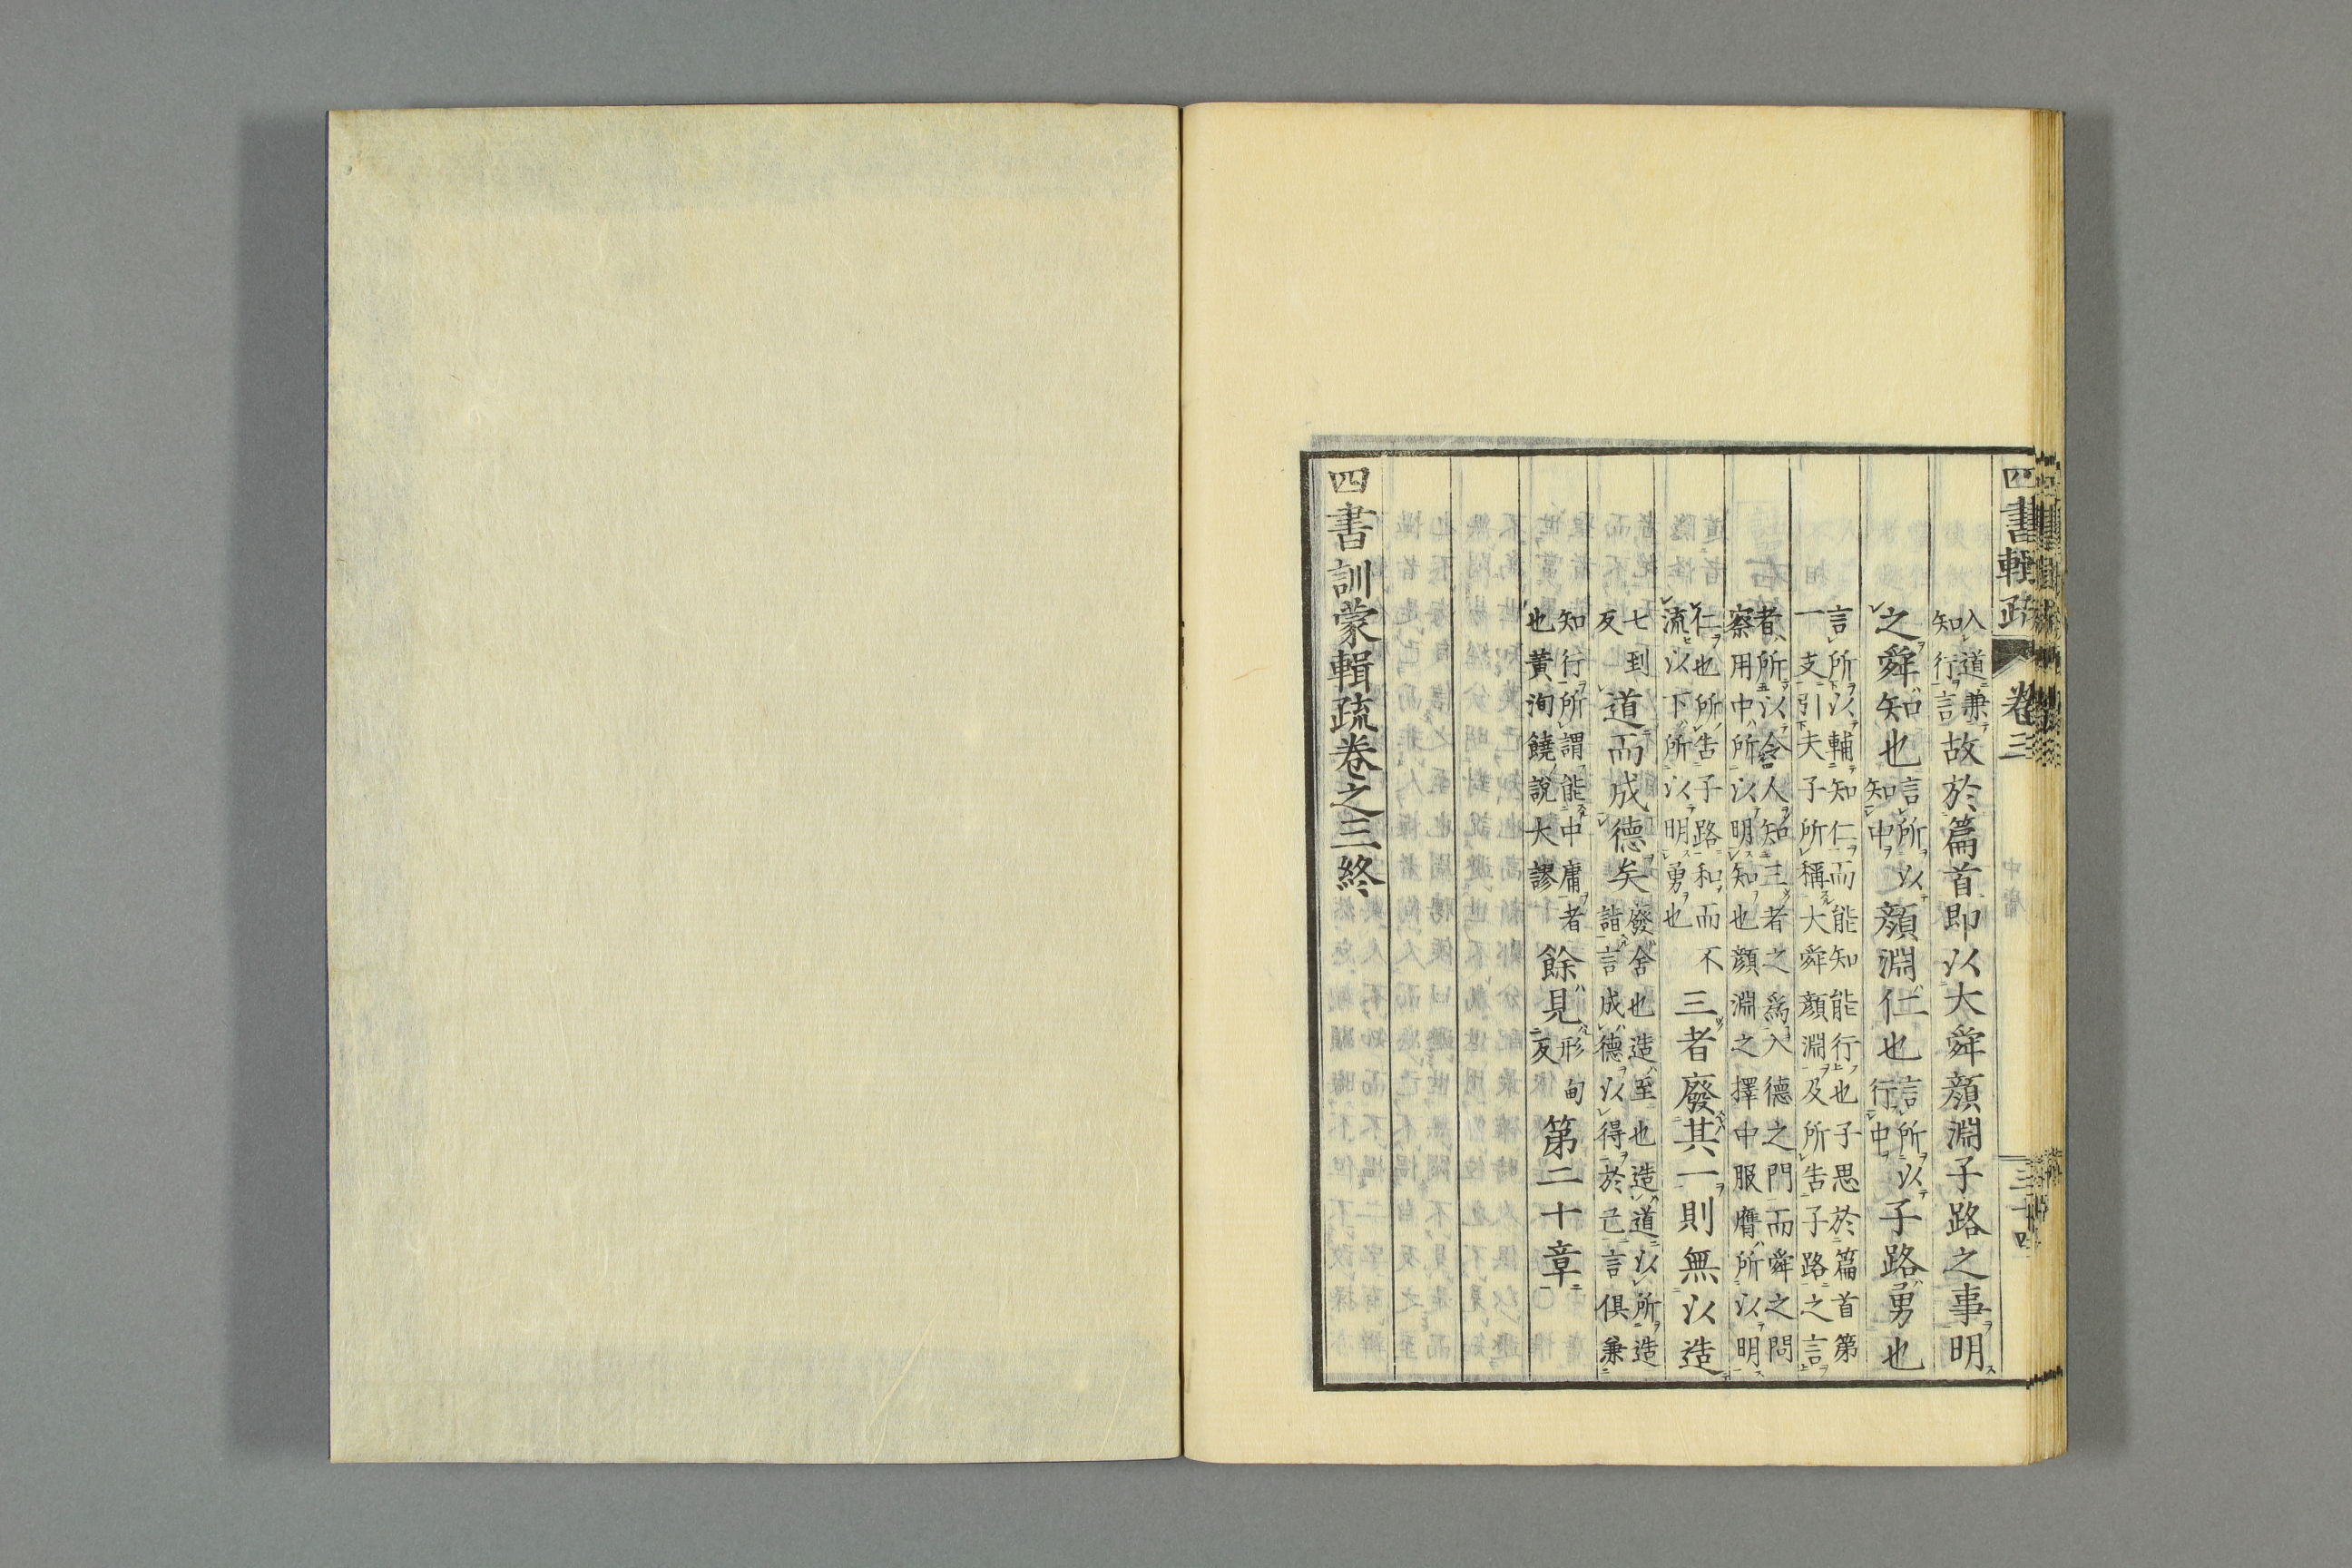 四書輯疏 卷三 三十四
入道兼
知行言故於篇首即以大舜顏淵子路之事明
之舜知也言所以
知中顏淵仁也言所以
行中子路勇也
言所以輔知仁而能知能行也子思於篇首第
一支引夫子所稱大舜顏淵及所告子路之言
者所以令人知三者之為入德之門而舜之問
察用中所以明知也顏淵之擇中服膺所以明
仁也所告子路和而不
流以下所以明勇也三者廢其一則無以造
七到
反道而成德矣廢舍也造至也造道以所造
詣言成德以得於己言俱兼
知行所謂能中庸者
也黃洵饒說大謬餘見形甸
反第二十章
四書訓蒙輯疏卷之三終